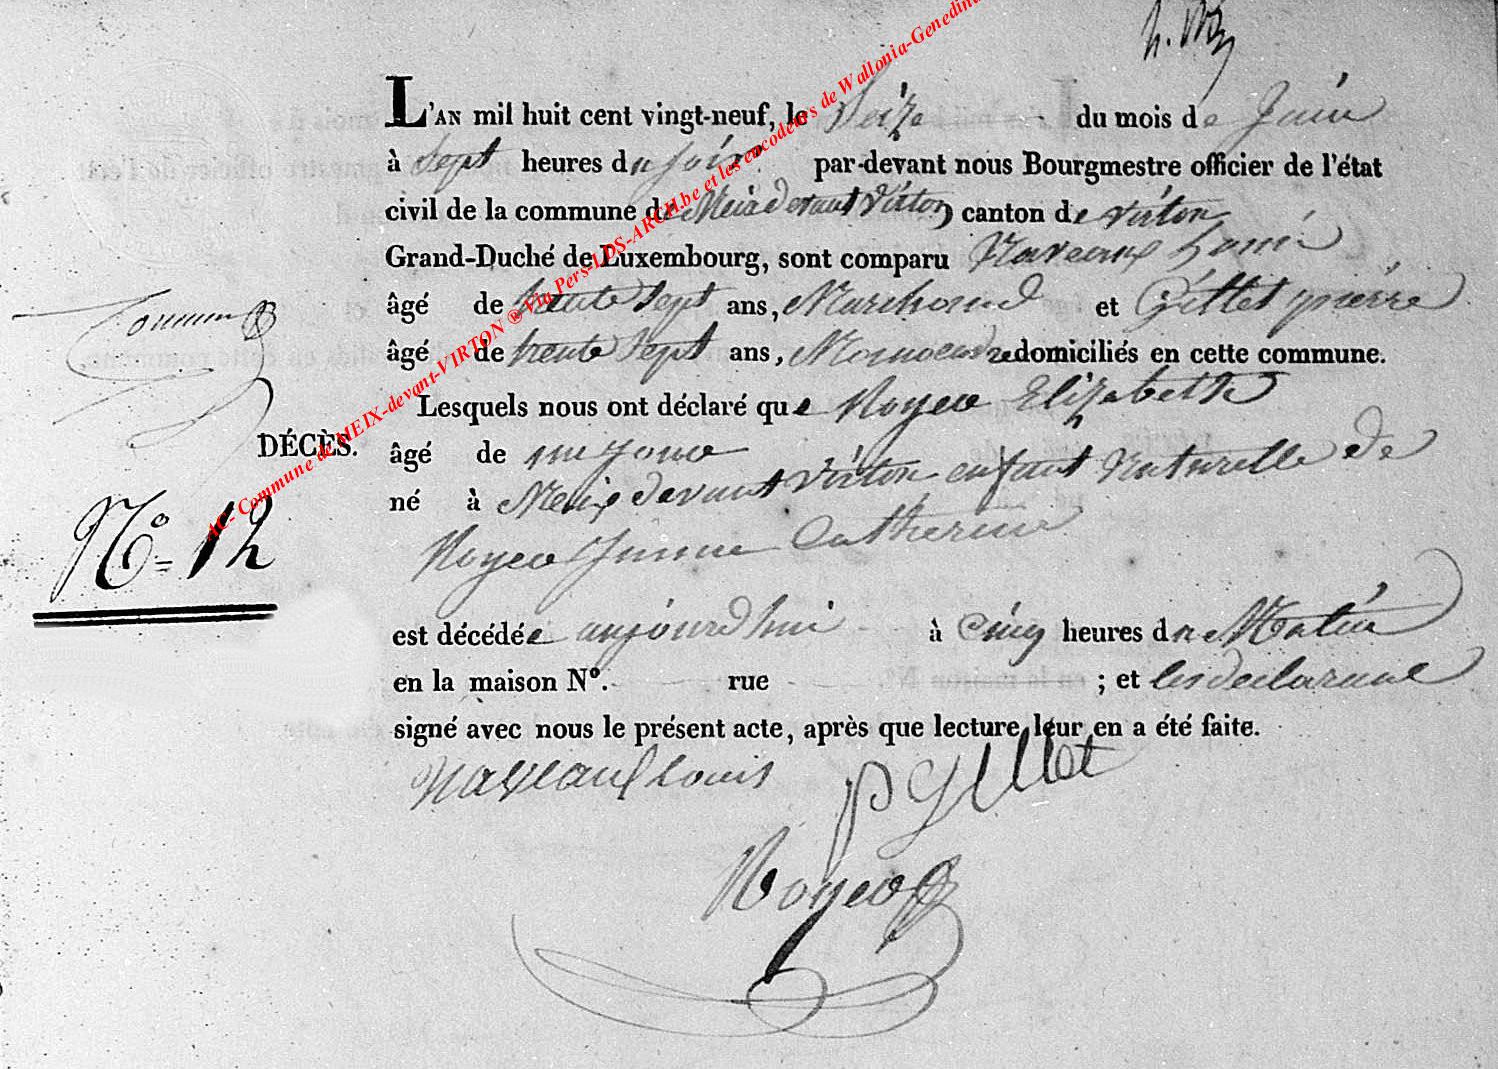 L'AN mil huit cent vingt-neuf, le Seize du mois de Juin
à Sept heures du soir par-devant nous Bourgmestre officier de l'état
civil de la commune de Meix devant Virton canton de Virton
Grand-Duché de Luxembourg, sont comparu Naveaux Louis
âgé de trente Sept ans, Marchand et Gillet pierre
âgé de trente Sept ans, domiciliés en cette commune.
Lesquels nous ont déclaré que Noyeo Elizabeth
DÉCÈS.
âgé de un Jour
né à Meix devant Virton enfant Naturelle de
Noyeo Jeanne Catherine
N° = 12
est décédée aujourd'hui à Cinq heures du Matin
en la maison N°. rue ; et les declarant
signé avec nous le présent acte, après que lecture leur en a été faite.
Naveaux Louis P Gillet
Noyeo
AC- Commune de MEIX-devant-VIRTON ® Via Pers-LDS-ARCH.be et les encodeurs de Wallonia-Genedina